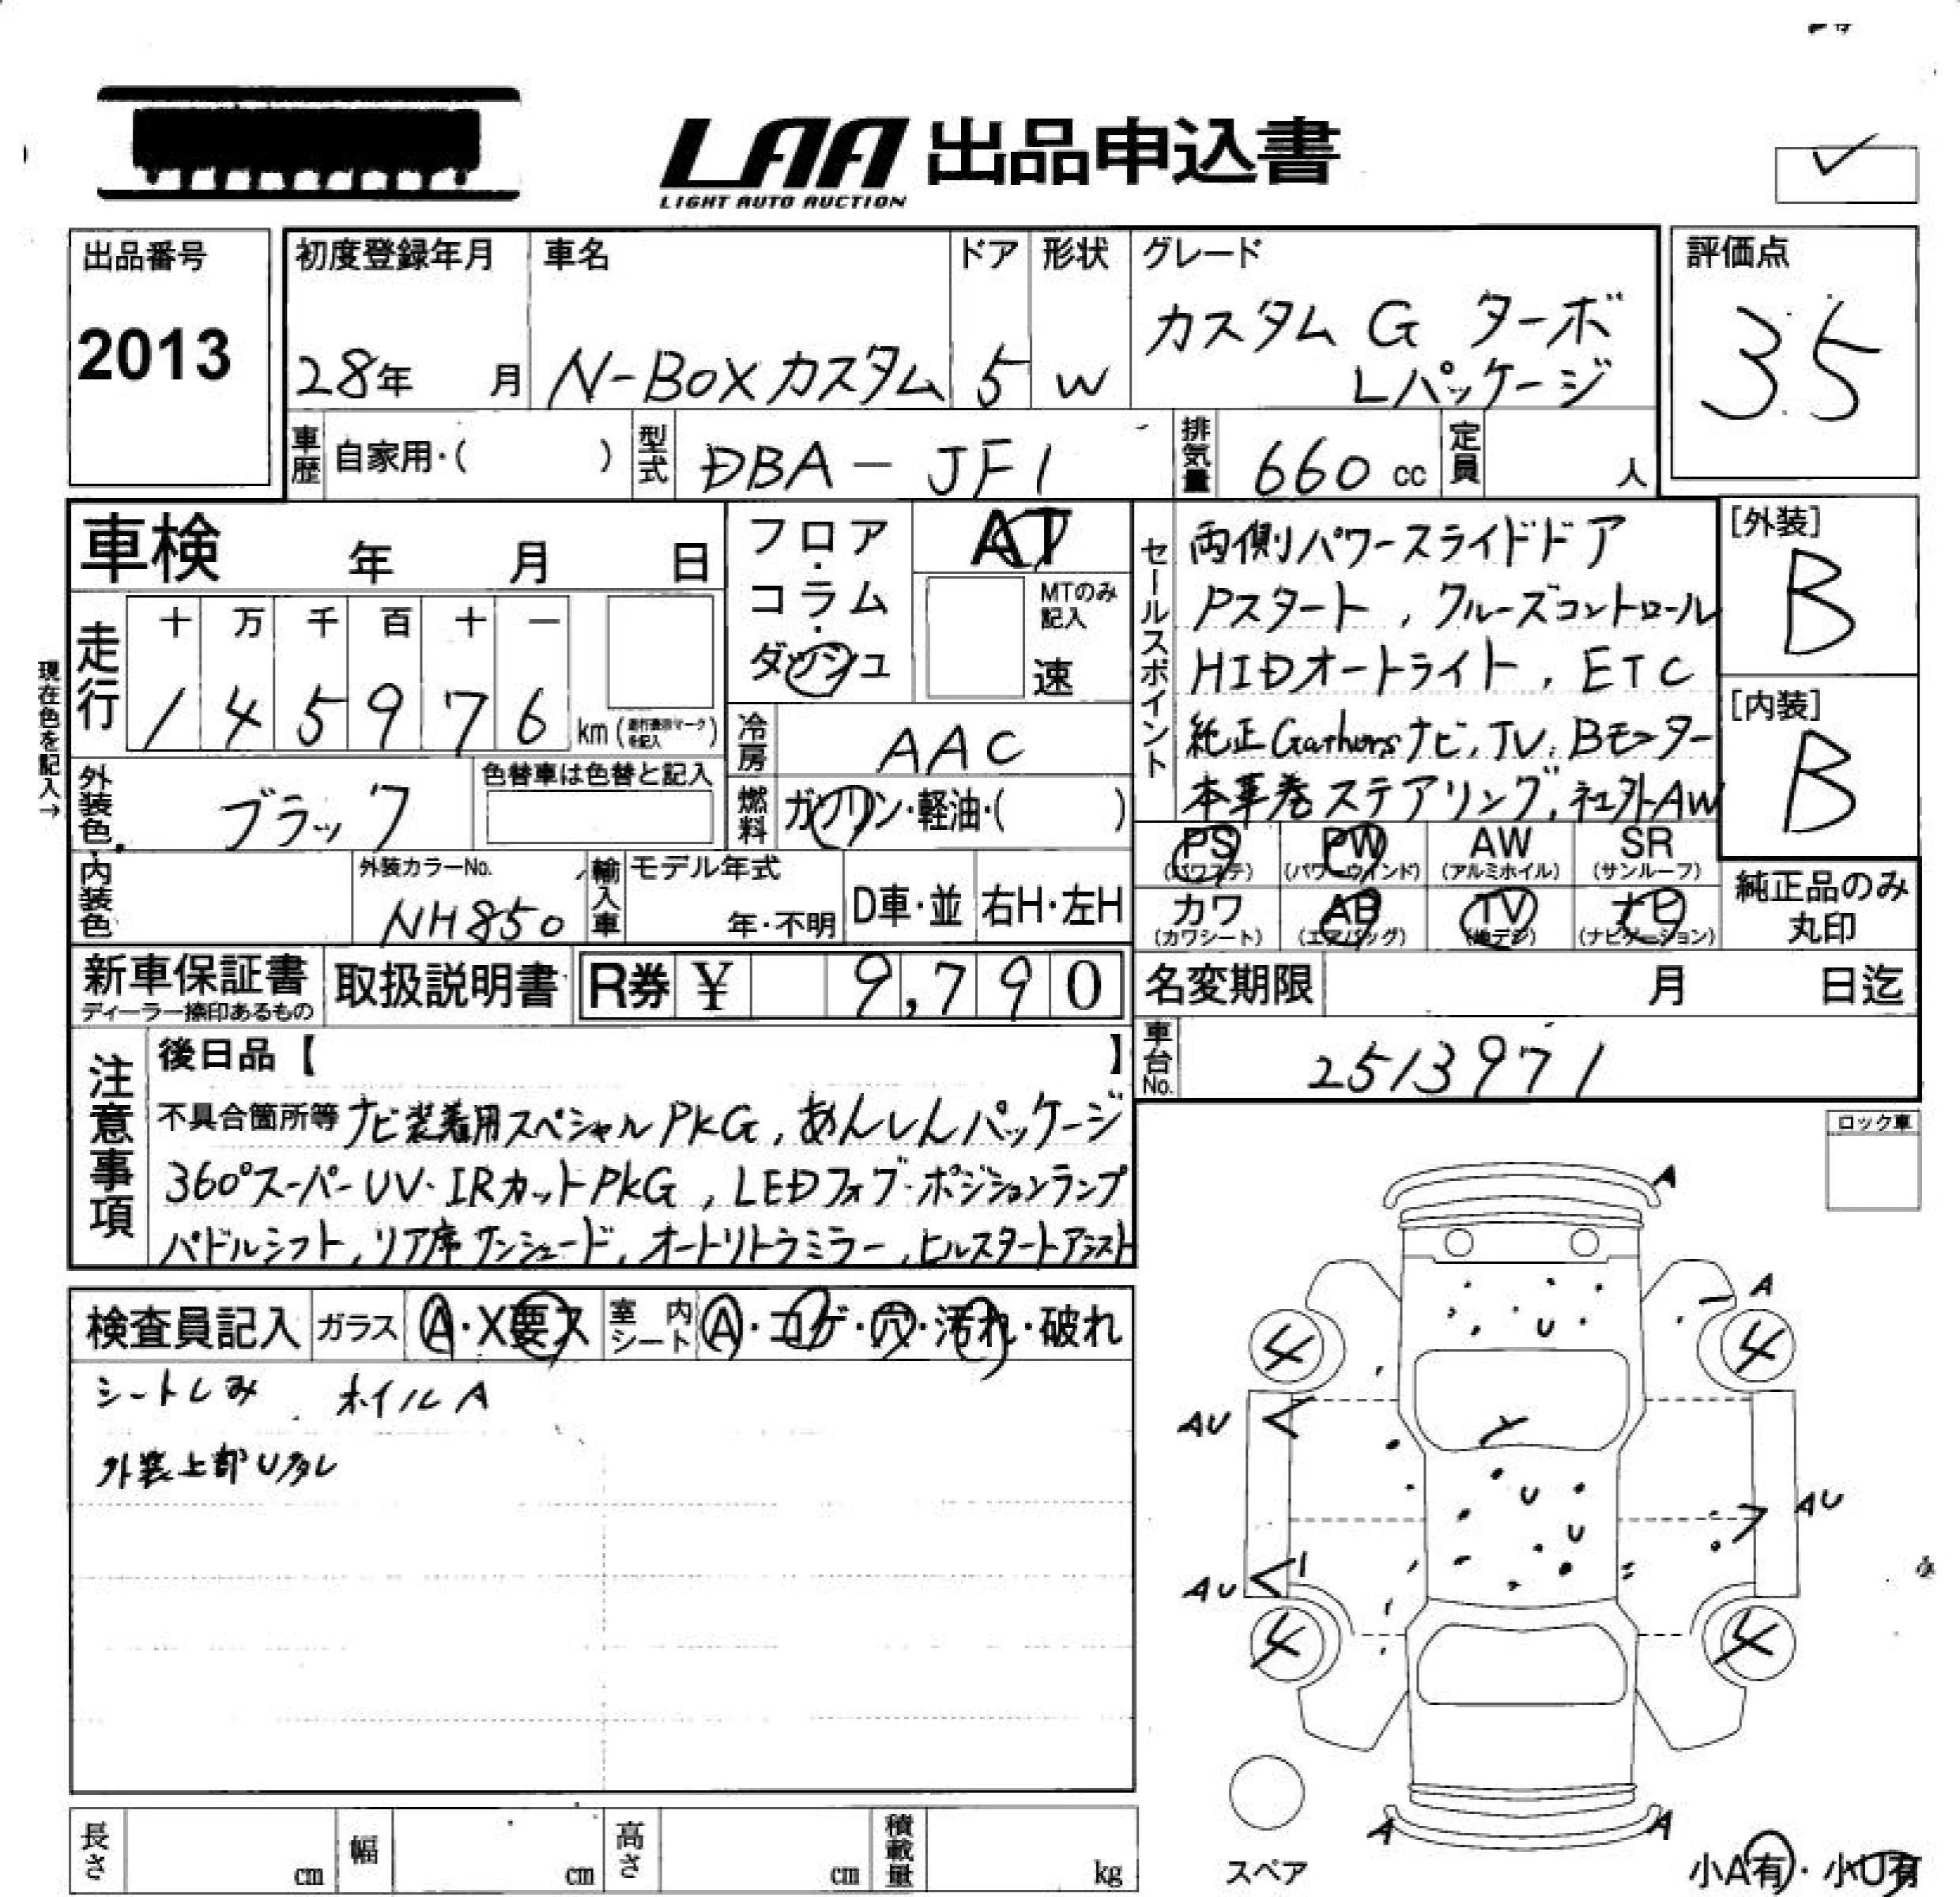 LAA 出品申込書
LIGHT AUTO AUCTION
出品番号
2013
初度登録年月
28年 月
車名
N-BOXカスタム
ドア
5
形状
W
グレード
カスタム G ターボ
Lパッケージ
評価点
3.5
車歴 自家用・( )
型式 DBA-JF1
排気量 660 cc
定員 人
車検 年 月 日
フロア・コラム・ダッシュ
AT
MTのみ記入
速
セールスポイント
両側パワースライドドア
Pスタート, クルーズコントロール
HIDオートライト, ETC
純正Gathersナビ, TV, Bモニター
本革巻ステアリング, 社外AW
[外装]
B
[内装]
B
現在色を記入→
走行
十 万 千 百 十 一
1 4 5 9 7 6 km
冷房 AAC
外装色 ブラック
色替車は色替と記入
燃料 ガソリン・軽油・( )
内装色
外装カラーNo.
NH850
輸入車
モデル年式
年・不明
D車・並
右H・左H
PS (パワステ) PW (パワーウインド) AW (アルミホイル) SR (サンルーフ)
カワ (カワシート) AB (エアバッグ) TV (地デジ) ナビ (ナビゲーション)
純正品のみ
丸印
新車保証書
ディーラー捺印あるもの
取扱説明書
R券 ¥ 9,790
名変期限 月 日迄
車台No. 2513971
注意事項
後日品【 】
不具合箇所等 ナビ装着用スペシャルPKG, あんしんパッケージ
360°スーパーUV・IRカットPKG, LEDフォグ・ポジションランプ
パドルシフト, リア席サンシェード, オートリトラミラー, ヒルスタートアシスト
ロック車
検査員記入
ガラス A・X要ス
室内シート A・コゲ・穴・汚れ・破れ
シートしみ ホイルA
外装上部U多し
A
A
4 4
U
AU
U
AU
U
AU
4 4
A A
スペア
小A有・小U有
長さ cm
幅 cm
高さ cm
積載量 kg